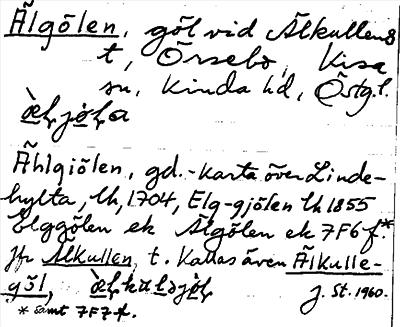 Ãlgölen, göl vid Älkullens
t, Örsebo, Kisa
sn, Kinda hd, Östg.l.
Åhlgiölen, gd. - karta över Linde-
hylta, lh, 1704, Elg-gjölen lh 1855
Elggölen ek Älgölen ek 7F6 f.*
Jfr Älkullen, t. Kallas även Älkulle-
göl,
* samt 7F7 f.
J. St. 1960.